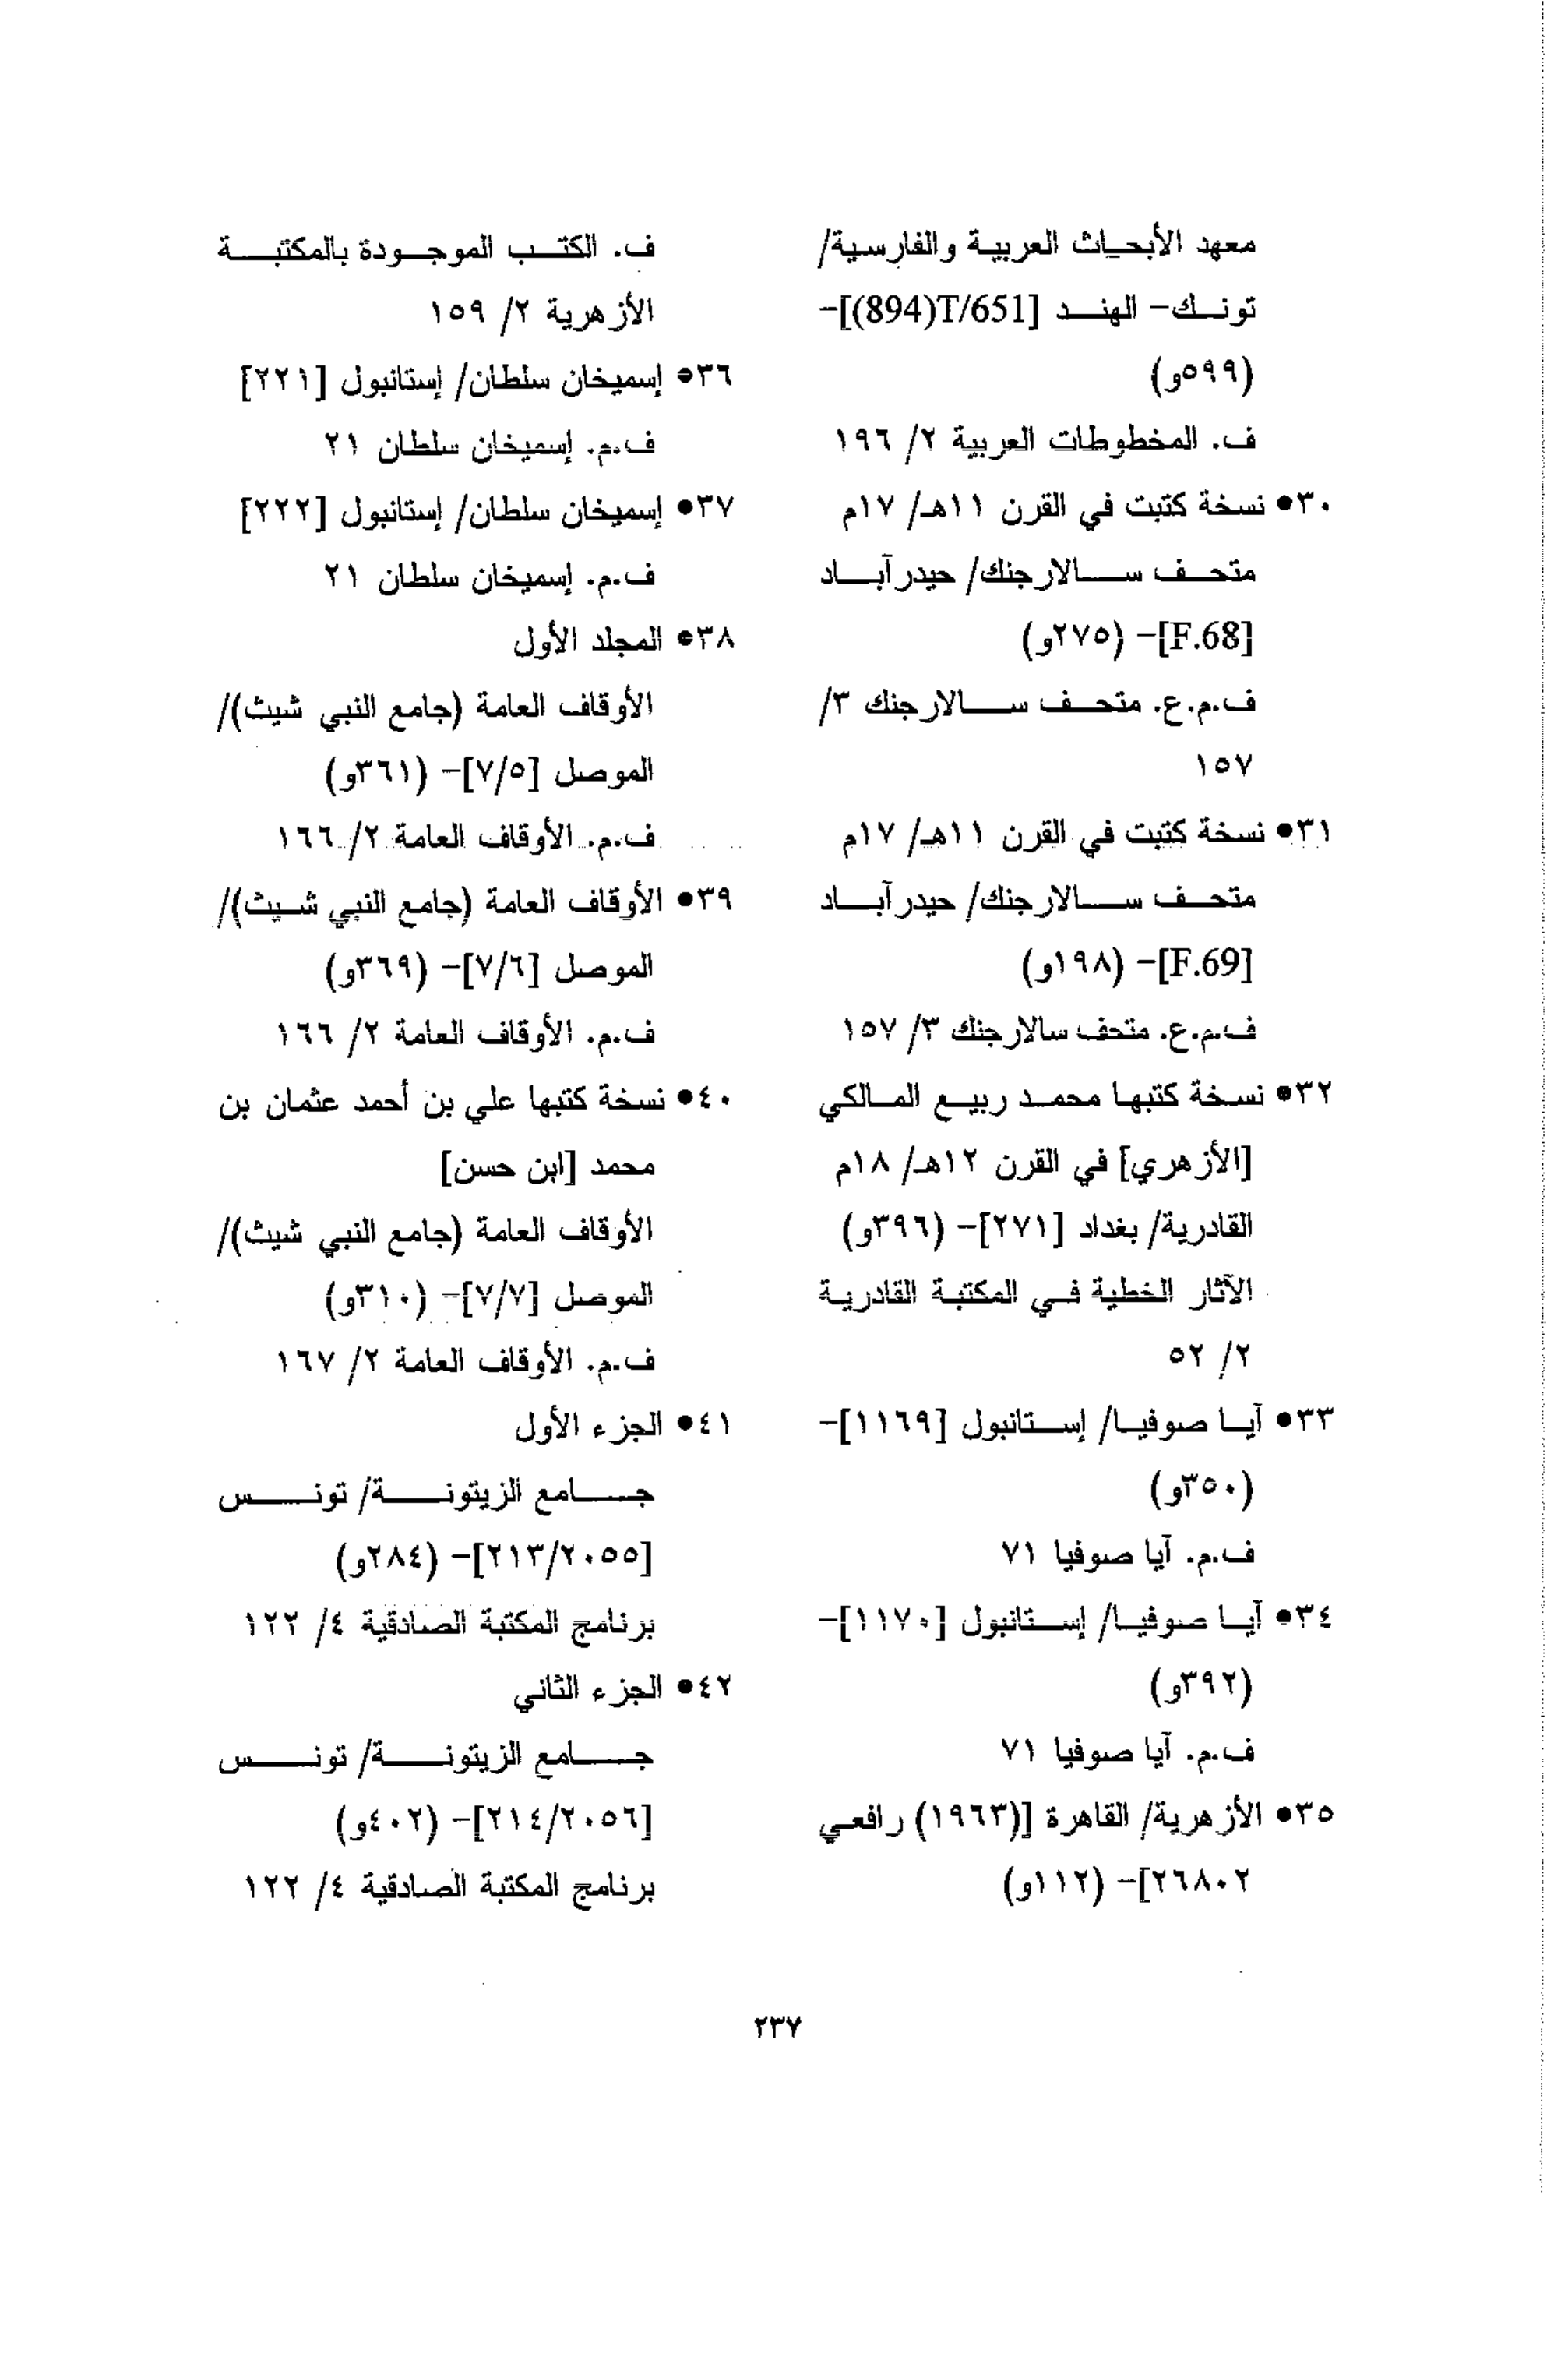 معهد الأبحاث العربية والفارسية/
تونك- الهند [T/651(894)]-
(٥٩٩و)
ف. المخطوطات العربية ٢/ ١٩٦
٣٠• نسخة كتبت في القرن ١١هـ/ ١٧م
متحف سالارجنك/ حيدرآباد
[F.68]- (٢٧٥و)
ف.م.ع. متحف سالارجنك ٣/
١٥٧
٣١• نسخة كتبت في القرن ١١هـ/ ١٧م
متحف سالارجنك/ حيدرآباد
[F.69]- (١٩٨و)
ف.م.ع. متحف سالارجنك ٣/ ١٥٧
٣٢• نسخة كتبها محمد ربيع المالكي
[الأزهري] في القرن ١٢هـ/ ١٨م
القادرية/ بغداد [٢٧١]- (٣٩٦و)
الآثار الخطية في المكتبة القادرية
٢/ ٥٢
٣٣• آيا صوفيا/ إستانبول [١١٦٩]-
(٣٥٠و)
ف.م. آيا صوفيا ٧١
٣٤• آيا صوفيا/ إستانبول [١١٧٠]-
(٣٩٢و)
ف.م. آيا صوفيا ٧١
٣٥• الأزهرية/ القاهرة [(١٩٦٣) رافعي
٢٦٨٠٢]- (١١٢و)
ف. الكتب الموجودة بالمكتبة
الأزهرية ٢/ ١٥٩
٣٦• إسميخان سلطان/ إستانبول [٢٢١]
ف.م. إسميخان سلطان ٢١
٣٧• إسميخان سلطان/ إستانبول [٢٢٢]
ف.م. إسميخان سلطان ٢١
٣٨• المجلد الأول
الأوقاف العامة (جامع النبي شيث)/
الموصل [٧/٥]- (٣٦١و)
ف.م. الأوقاف العامة ٢/ ١٦٦
٣٩• الأوقاف العامة (جامع النبي شيث)/
الموصل [٧/٦]- (٣٦٩و)
ف.م. الأوقاف العامة ٢/ ١٦٦
٤٠• نسخة كتبها علي بن أحمد عثمان بن
محمد [ابن حسن]
الأوقاف العامة (جامع النبي شيث)/
الموصل [٧/٧]- (٣١٠و)
ف.م. الأوقاف العامة ٢/ ١٦٧
٤١• الجزء الأول
جامع الزيتونة/ تونس
[٢١٣/٢٠٥٥]- (٢٨٤و)
برنامج المكتبة الصادقية ٤/ ١٢٢
٤٢• الجزء الثاني
جامع الزيتونة/ تونس
[٢١٤/٢٠٥٦]- (٤٠٢و)
برنامج المكتبة الصادقية ٤/ ١٢٢
٢٣٧